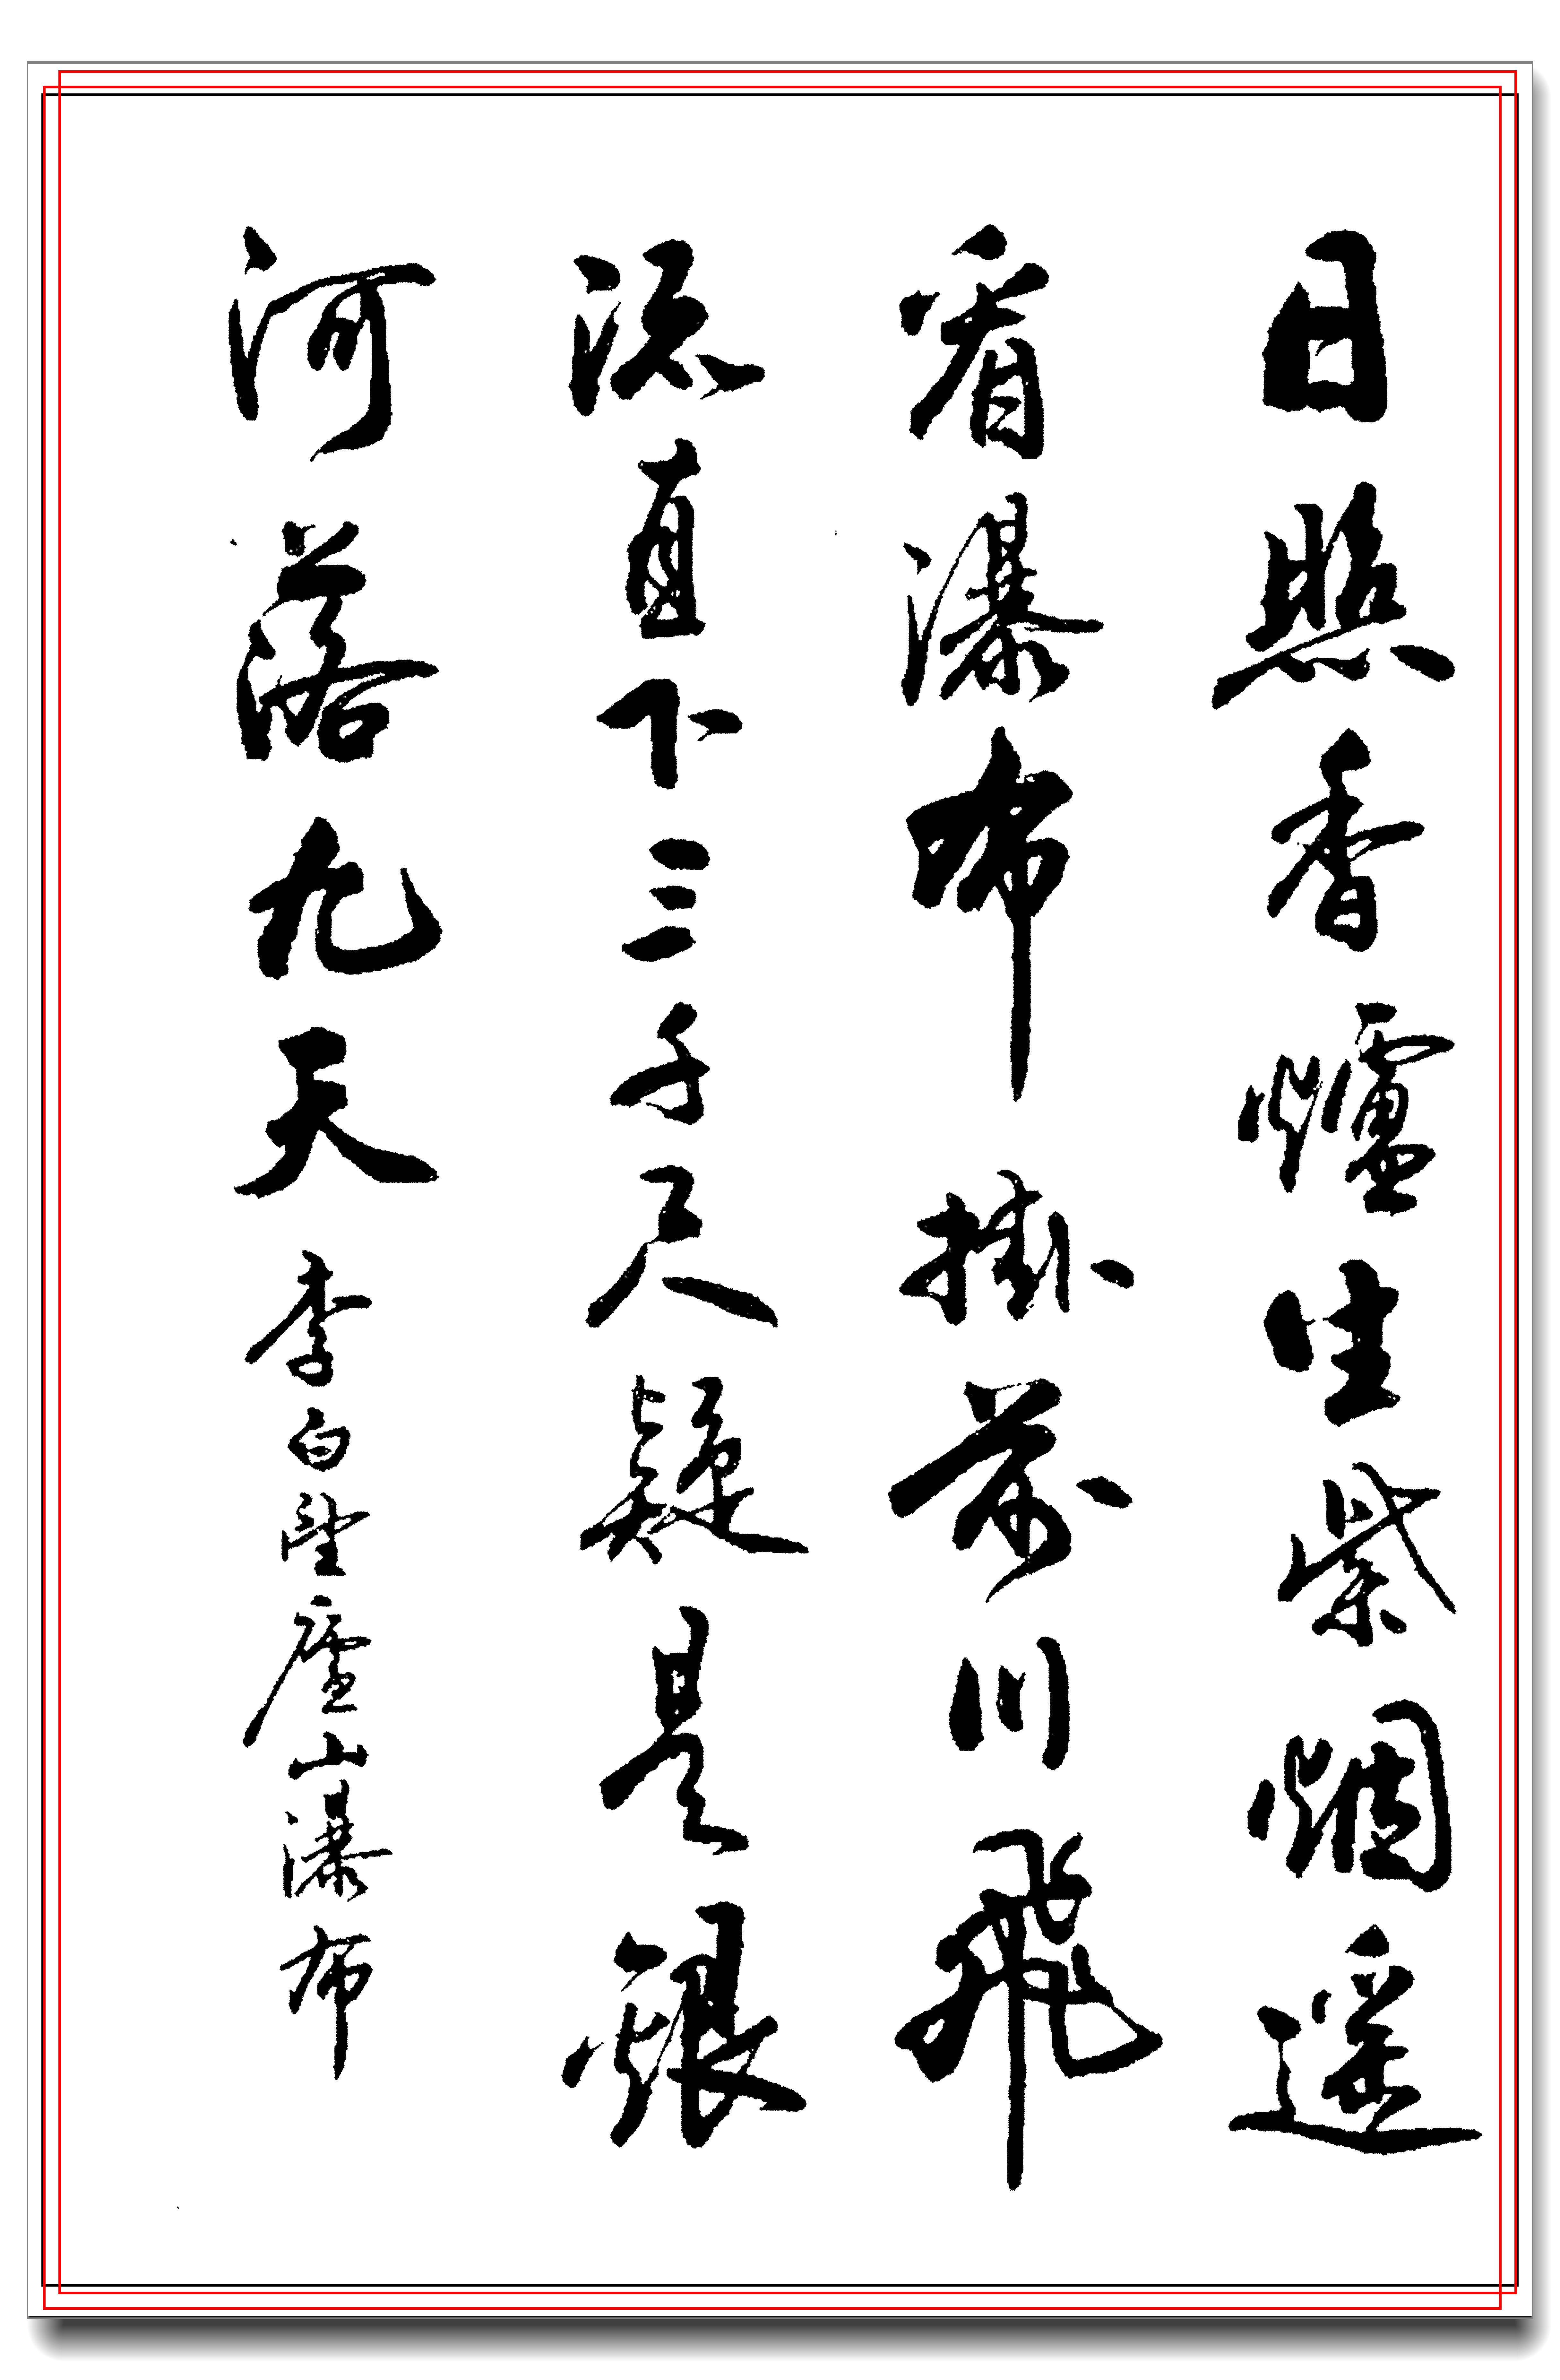 日照香爐生紫烟遥
看瀑布掛前川飛
流直下三千尺疑是銀
河落九天李白望廬山瀑布